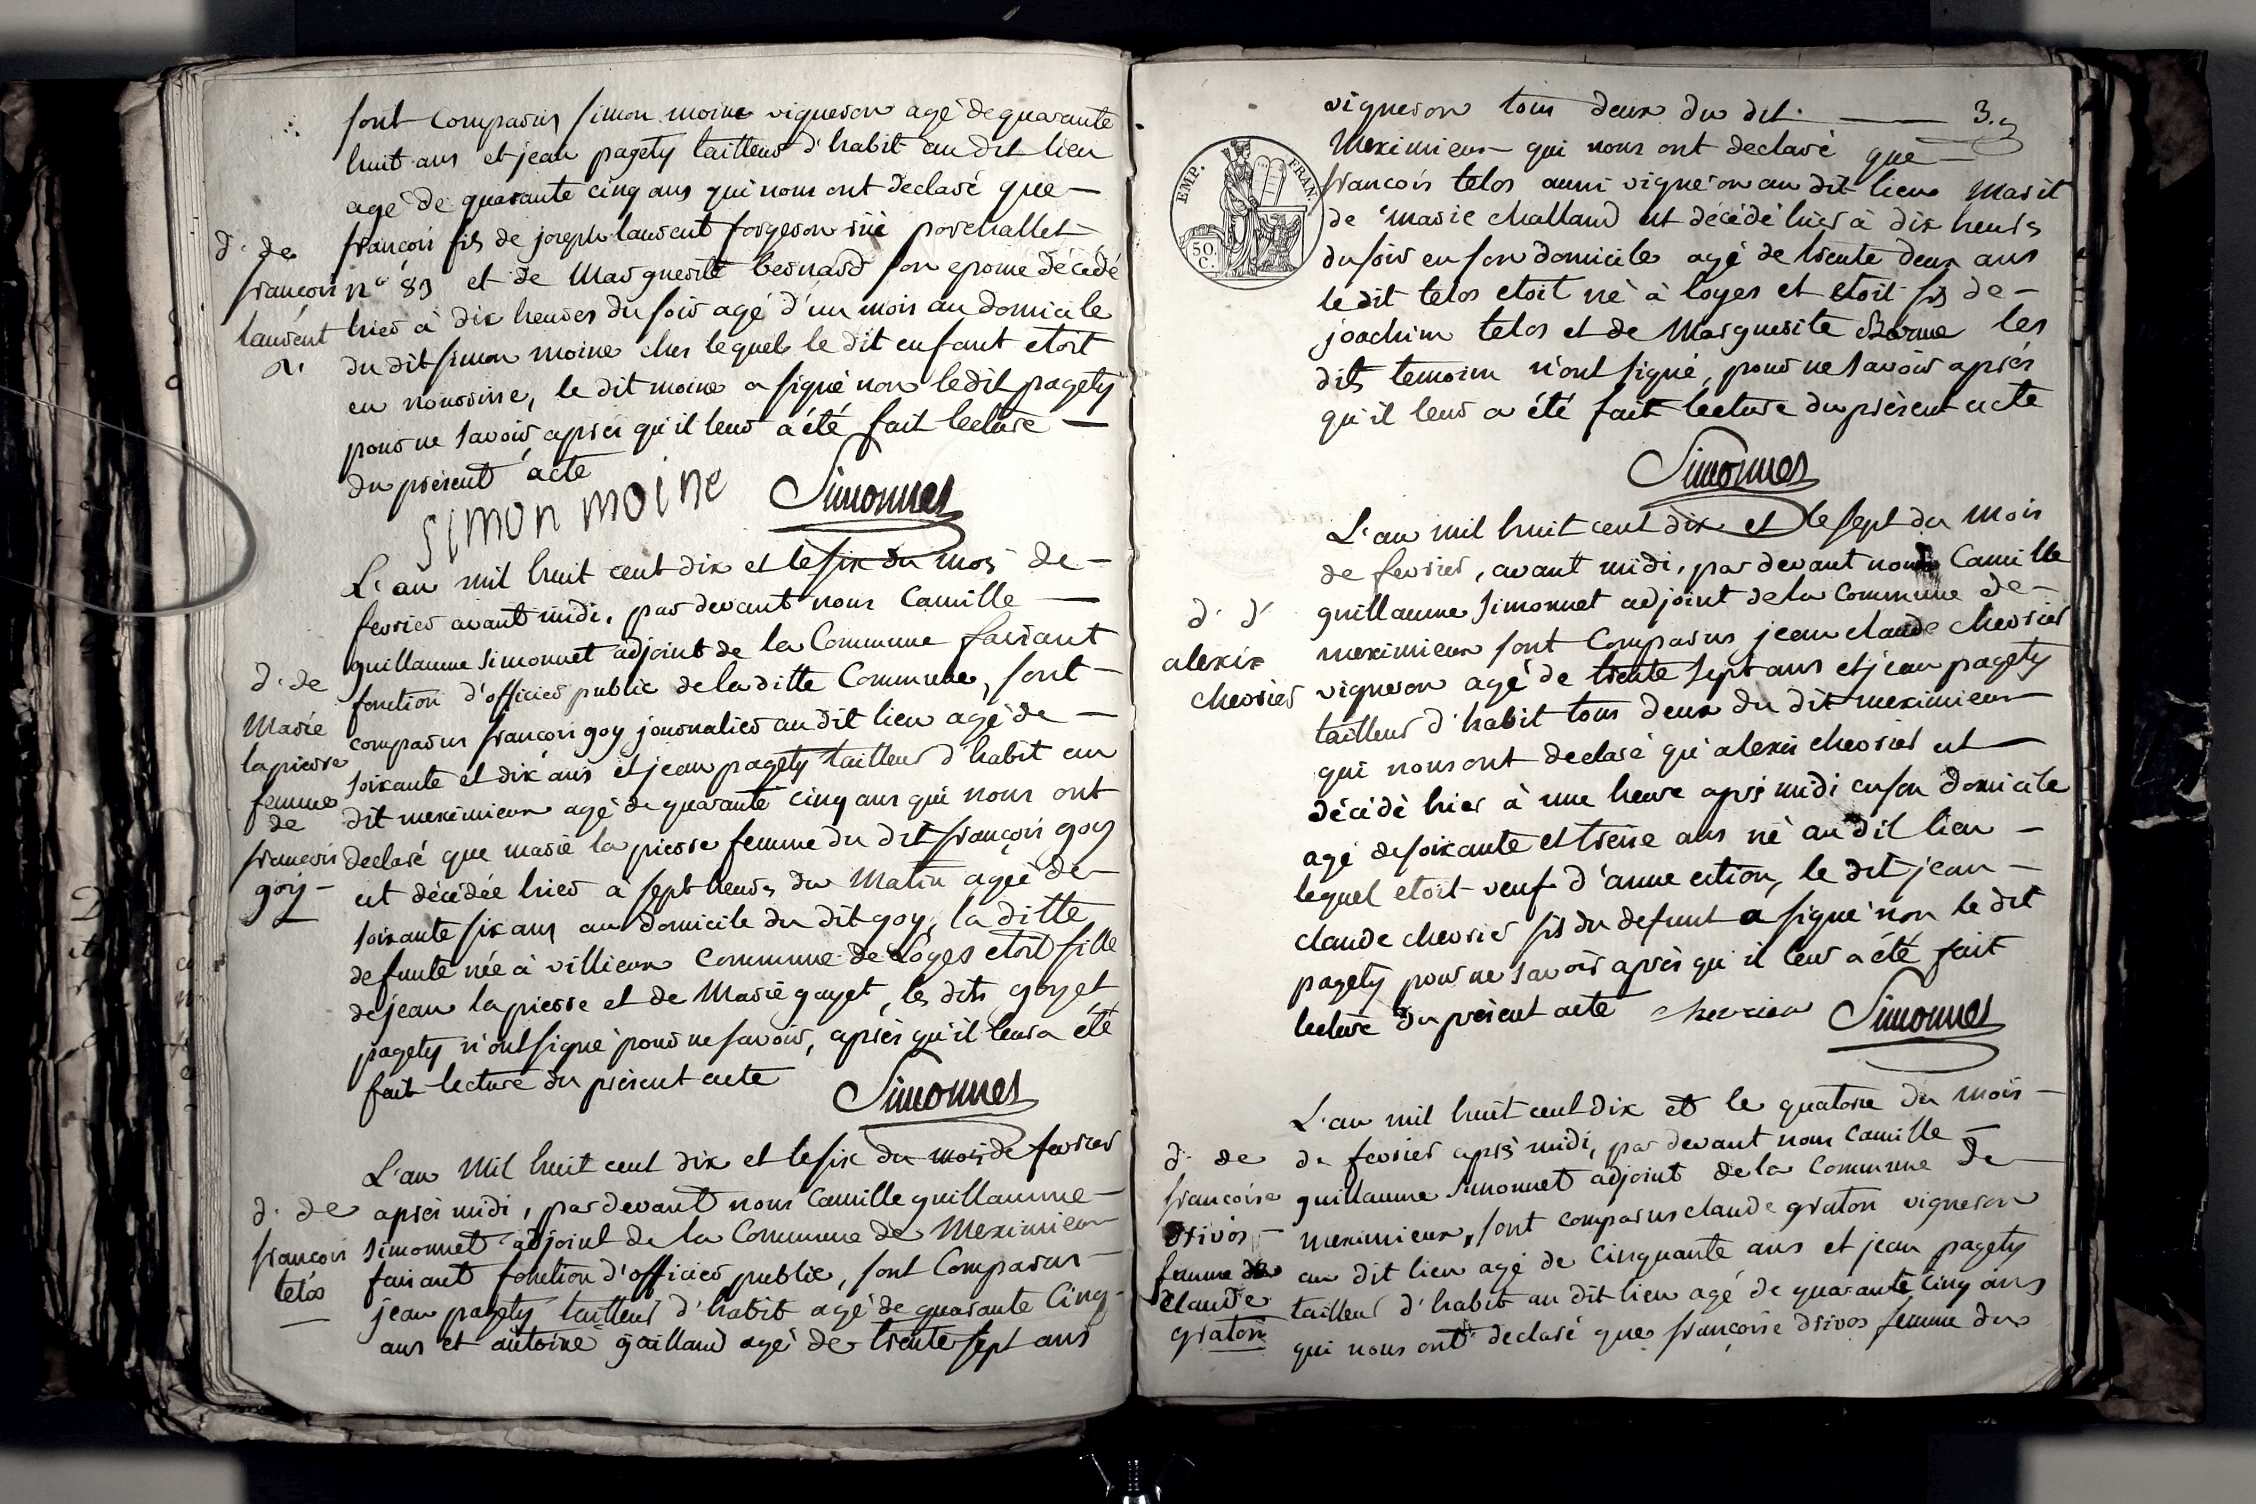 sont comparus simon moine vigneron agé de quarante
huit ans et jean pagety tailleur d'habit au dit lieu
agé de quarante cinq ans qui nous ont declaré que —
d. de
françois
laurent
françois fils de joseph laurent forgeron rüe porchallet
n° 89 et de Marguerite bernard son epouse décédé
hier à dix heures du soir agé d'un mois au domicile
du dit simon moine ches lequel le dit enfant etoit
en nourisse, le dit moine a signé non le dit pagety
pour ne savoir après qu'il leur a été fait lecture —
du présent acte
simon moine Simonnet
L'an mil huit cent dix et le six du mois de —
fevrier avant midi, par devant nous Camille —
guillaume simonnet adjoint de la Commune faisant
d. de
Marie
lapierre
femme
de
françois
goy —
fonction d'officier public de la ditte Commune, sont —
comparus françois goy journalier au dit lieu agé de —
soixante et dix ans et jean pagety tailleur d'habit au
dit meximieux agé de quarante cinq ans qui nous ont
declaré que marie la pierre femme du dit françois goy
est décédée hier a sept heures du Matin agée de
soixante six ans au domicile du dit goy, la ditte
defunte née à villieux Commune de Loyes etoit fille
de jean la pierre et de Marie gayet, les dits goy et
pagety n'ont signé pour ne savoir, après qu'il leur a été
fait lecture du présent acte Simonnet
L'an Mil huit cent dix et le six du mois de fevrier
d. de
françois
telos
après midi, par devant nous Camille guillaume —
simonnet adjoint de la Commune de Meximieux
faisant fonction d'officier public, sont Comparus —
jean pagety tailleur d'habit agé de quarante Cinq —
ans et antoine gailland agé de trente sept ans
3.
vigneron tous deux du dit. —
EMP. FRAN.
50 C.
Meximieux — qui nous ont declaré que —
francois telos aussi vigneron au dit lieu Marit
de Marie challand est décédé hier à dix heures
du soir en son domicile agé de trente deux ans
le dit telos etoit né à loyes et etoit fils de —
joachim telos et de Marguerite Borne les
dits temoins n'ont signé, pour ne savoir après
qu'il leur a été fait lecture du présent acte
Simonnet
L'an mil huit cent dix et le sept du Mois
de fevrier, avant midi, par devant nous Camille
d. d'
alexix
chevrier
guillaume simonnet adjoint de la Commune de —
meximieux sont Comparus jean claude chevrier
vigneron agé de trente sept ans et jean pagety
tailleur d'habit tous deux du dit meximieux
qui nous ont declaré qu'alexis chevrier est —
décédé hier à une heure après midi en son domicile
agé de soixante et treise ans né au dit lieu —
lequel etoit veuf d'anne ction, le dit jean —
claude chevrier fils du defunt a signé non le dit
pagety pour ne savoir après qu'il leur a été fait
lecture du présent acte chevrier Simonnet
L'an mil huit cent dix et le quatorse du Mois —
d. de
francoise
drivos
femme de
claude
graton
de fevrier après midi, par devant nous camille —
guillaume simonnet adjoint de la Commune de —
meximieux, sont comparus claude graton vigneron
au dit lieu agé de Cinquante ans et jean pagety
tailleur d'habit au dit lieu agé de quarante cinq ans
qui nous ont declaré que françoise drivos femme du